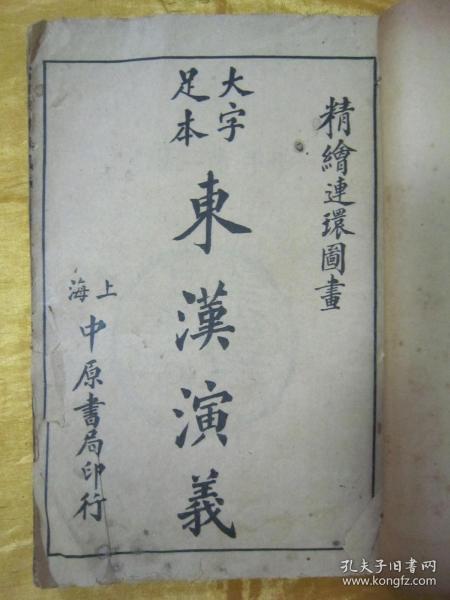 精繪連環圖畫
大字
足本
東漢演義
上海
中原書局印行
孔夫子旧书网
www.kongfz.com